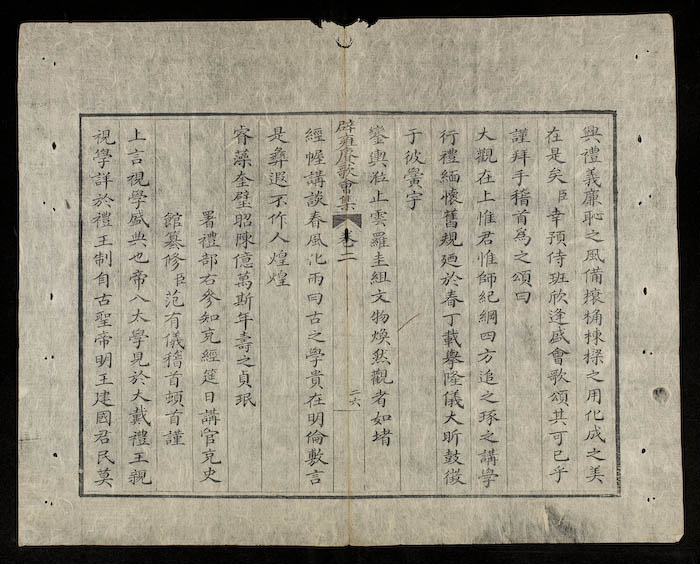 興禮義廉恥之風備榱桷棟樑之用化成之美
在是矣臣幸預侍班欣逢盛會歌頌其可已乎
謹拜手稽首為之頌曰
大觀在上惟君惟師紀綱四方追之琢之講學
行禮緬懷舊規廼於春丁載擧隆儀大昕鼓徵
于彼黌宇
鑾輿涖止雲羅圭組文物煥然觀者如堵
辟雍賡歌會集 卷二 二六
經幄講談春風化雨曰古之學貴在明倫敷言
是彝遐不作人煌煌
睿藻奎璧昭陳億萬斯年壽之貞珉
署禮部右參知充經筵日講官充史
館纂修臣范有儀稽首頓首謹
上言視學盛典也帝入太學見於大戴禮王親
視學詳於禮王制自古聖帝明王建國君民莫